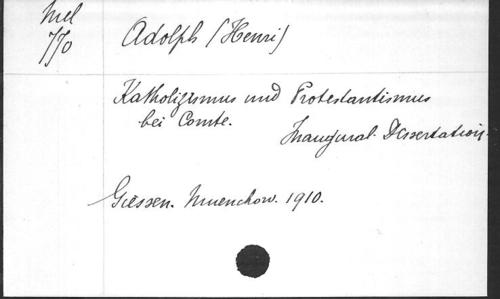 Mel
770
Adolph (Henri)
Katholizismus und Protestantismus
bei Comte.
Inaugural-Dissertation.
Giessen. Muenchow. 1910.